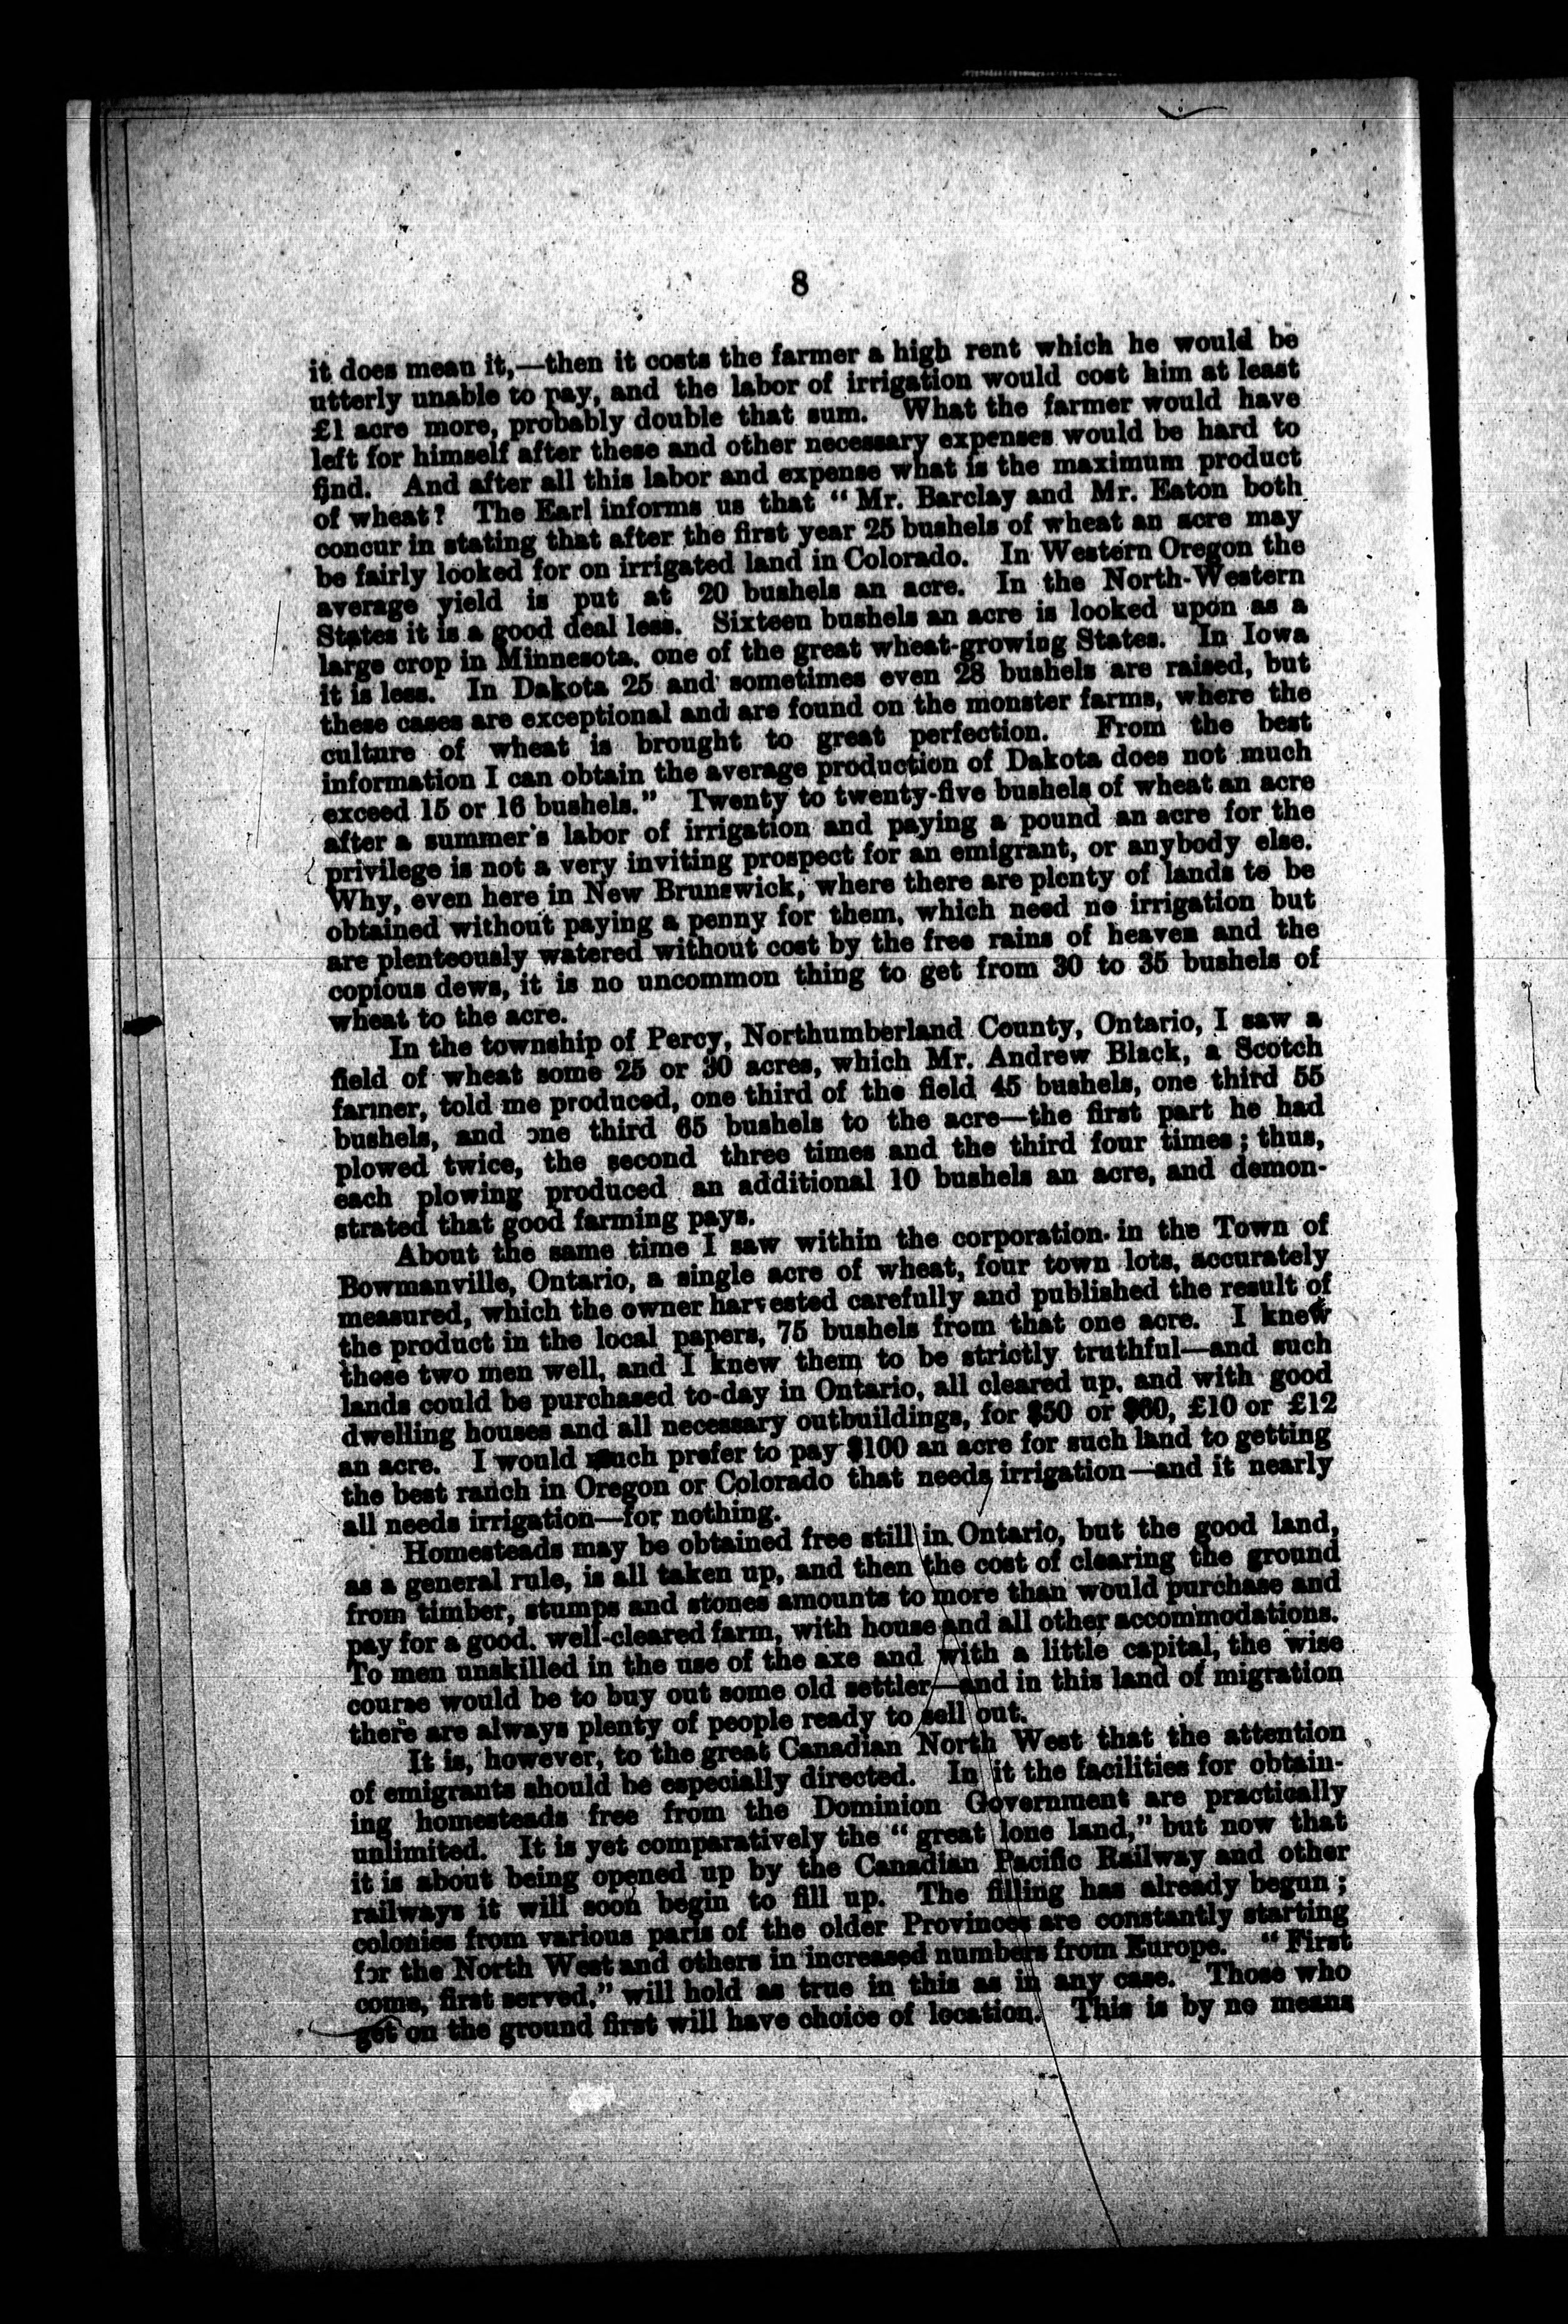 8
it does mean it,—then it costs the farmer a high rent which he would be
utterly unable to pay, and the labor of irrigation would cost him at least
£1 acre more, probably double that sum. What the farmer would have
left for himself after these and other necessary expenses would be hard to
find. And after all this labor and expense what is the maximum product
of wheat? The Earl informs us that "Mr. Barclay and Mr. Eaton both
concur in stating that after the first year 25 bushels of wheat an acre may
be fairly looked for on irrigated land in Colorado. In Western Oregon the
average yield is put at 20 bushels an acre. In the North-Western
States it is a good deal less. Sixteen bushels an acre is looked upon as a
large crop in Minnesota, one of the great wheat-growing States. In Iowa
it is less. In Dakota 25 and sometimes even 28 bushels are raised, but
these cases are exceptional and are found on the monster farms, where the
culture of wheat is brought to great perfection. From the best
information I can obtain the average production of Dakota does not much
exceed 15 or 16 bushels." Twenty to twenty-five bushels of wheat an acre
after a summer's labor of irrigation and paying a pound an acre for the
privilege is not a very inviting prospect for an emigrant, or anybody else.
Why, even here in New Brunswick, where there are plenty of lands to be
obtained without paying a penny for them, which need no irrigation but
are plenteously watered without cost by the free rains of heaven and the
copious dews, it is no uncommon thing to get from 30 to 35 bushels of
wheat to the acre.
In the township of Percy, Northumberland County, Ontario, I saw a
field of wheat some 25 or 30 acres, which Mr. Andrew Black, a Scotch
farmer, told me produced, one third of the field 45 bushels, one third 55
bushels, and one third 65 bushels to the acre—the first part he had
plowed twice, the second three times and the third four times; thus,
each plowing produced an additional 10 bushels an acre, and demon-
strated that good farming pays.
About the same time I saw within the corporation in the Town of
Bowmanville, Ontario, a single acre of wheat, four town lots, accurately
measured, which the owner harvested carefully and published the result of
the product in the local papers, 75 bushels from that one acre. I knew
those two men well, and I knew them to be strictly truthful—and such
lands could be purchased to-day in Ontario, all cleared up, and with good
dwelling houses and all necessary outbuildings, for $50 or $60, £10 or £12
an acre. I would much prefer to pay $100 an acre for such land to getting
the best ranch in Oregon or Colorado that needs irrigation—and it nearly
all needs irrigation—for nothing.
Homesteads may be obtained free still in Ontario, but the good land,
as a general rule, is all taken up, and then the cost of clearing the ground
from timber, stumps and stones amounts to more than would purchase and
pay for a good, well-cleared farm, with house and all other accommodations.
To men unskilled in the use of the axe and with a little capital, the wise
course would be to buy out some old settler—and in this land of migration
there are always plenty of people ready to sell out.
It is, however, to the great Canadian North West that the attention
of emigrants should be especially directed. In it the facilities for obtain-
ing homesteads free from the Dominion Government are practically
unlimited. It is yet comparatively the "great lone land," but now that
it is about being opened up by the Canadian Pacific Railway and other
railways it will soon begin to fill up. The filling has already begun;
colonies from various parts of the older Provinces are constantly starting
for the North West and others in increased numbers from Europe. "First
come, first served," will hold as true in this as in any case. Those who
get on the ground first will have choice of location. This is by no means